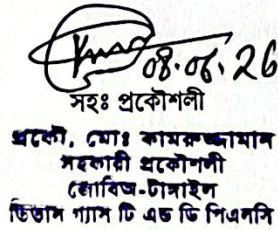 08.06.26
সহঃ প্রকৌশলী
প্রকৌ, মোঃ কামরুজ্জামান
সহকারী প্রকৌশলী
জোবিঅ-টাঙ্গাইল
তিতাস গ্যাস টি এন্ড ডি পিএলসি